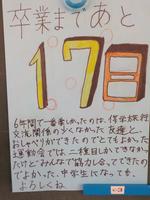 卒業まであと
17日
6年間で一番楽しかったのは、修学旅行
交流関係の少なかった友達と、
おしゃべりができたのでとてもよかった
運動会では、二種目しかできなか
ったけどみんなで協力し合ってできたの
でよかった。中学生になっても、
よろしくね